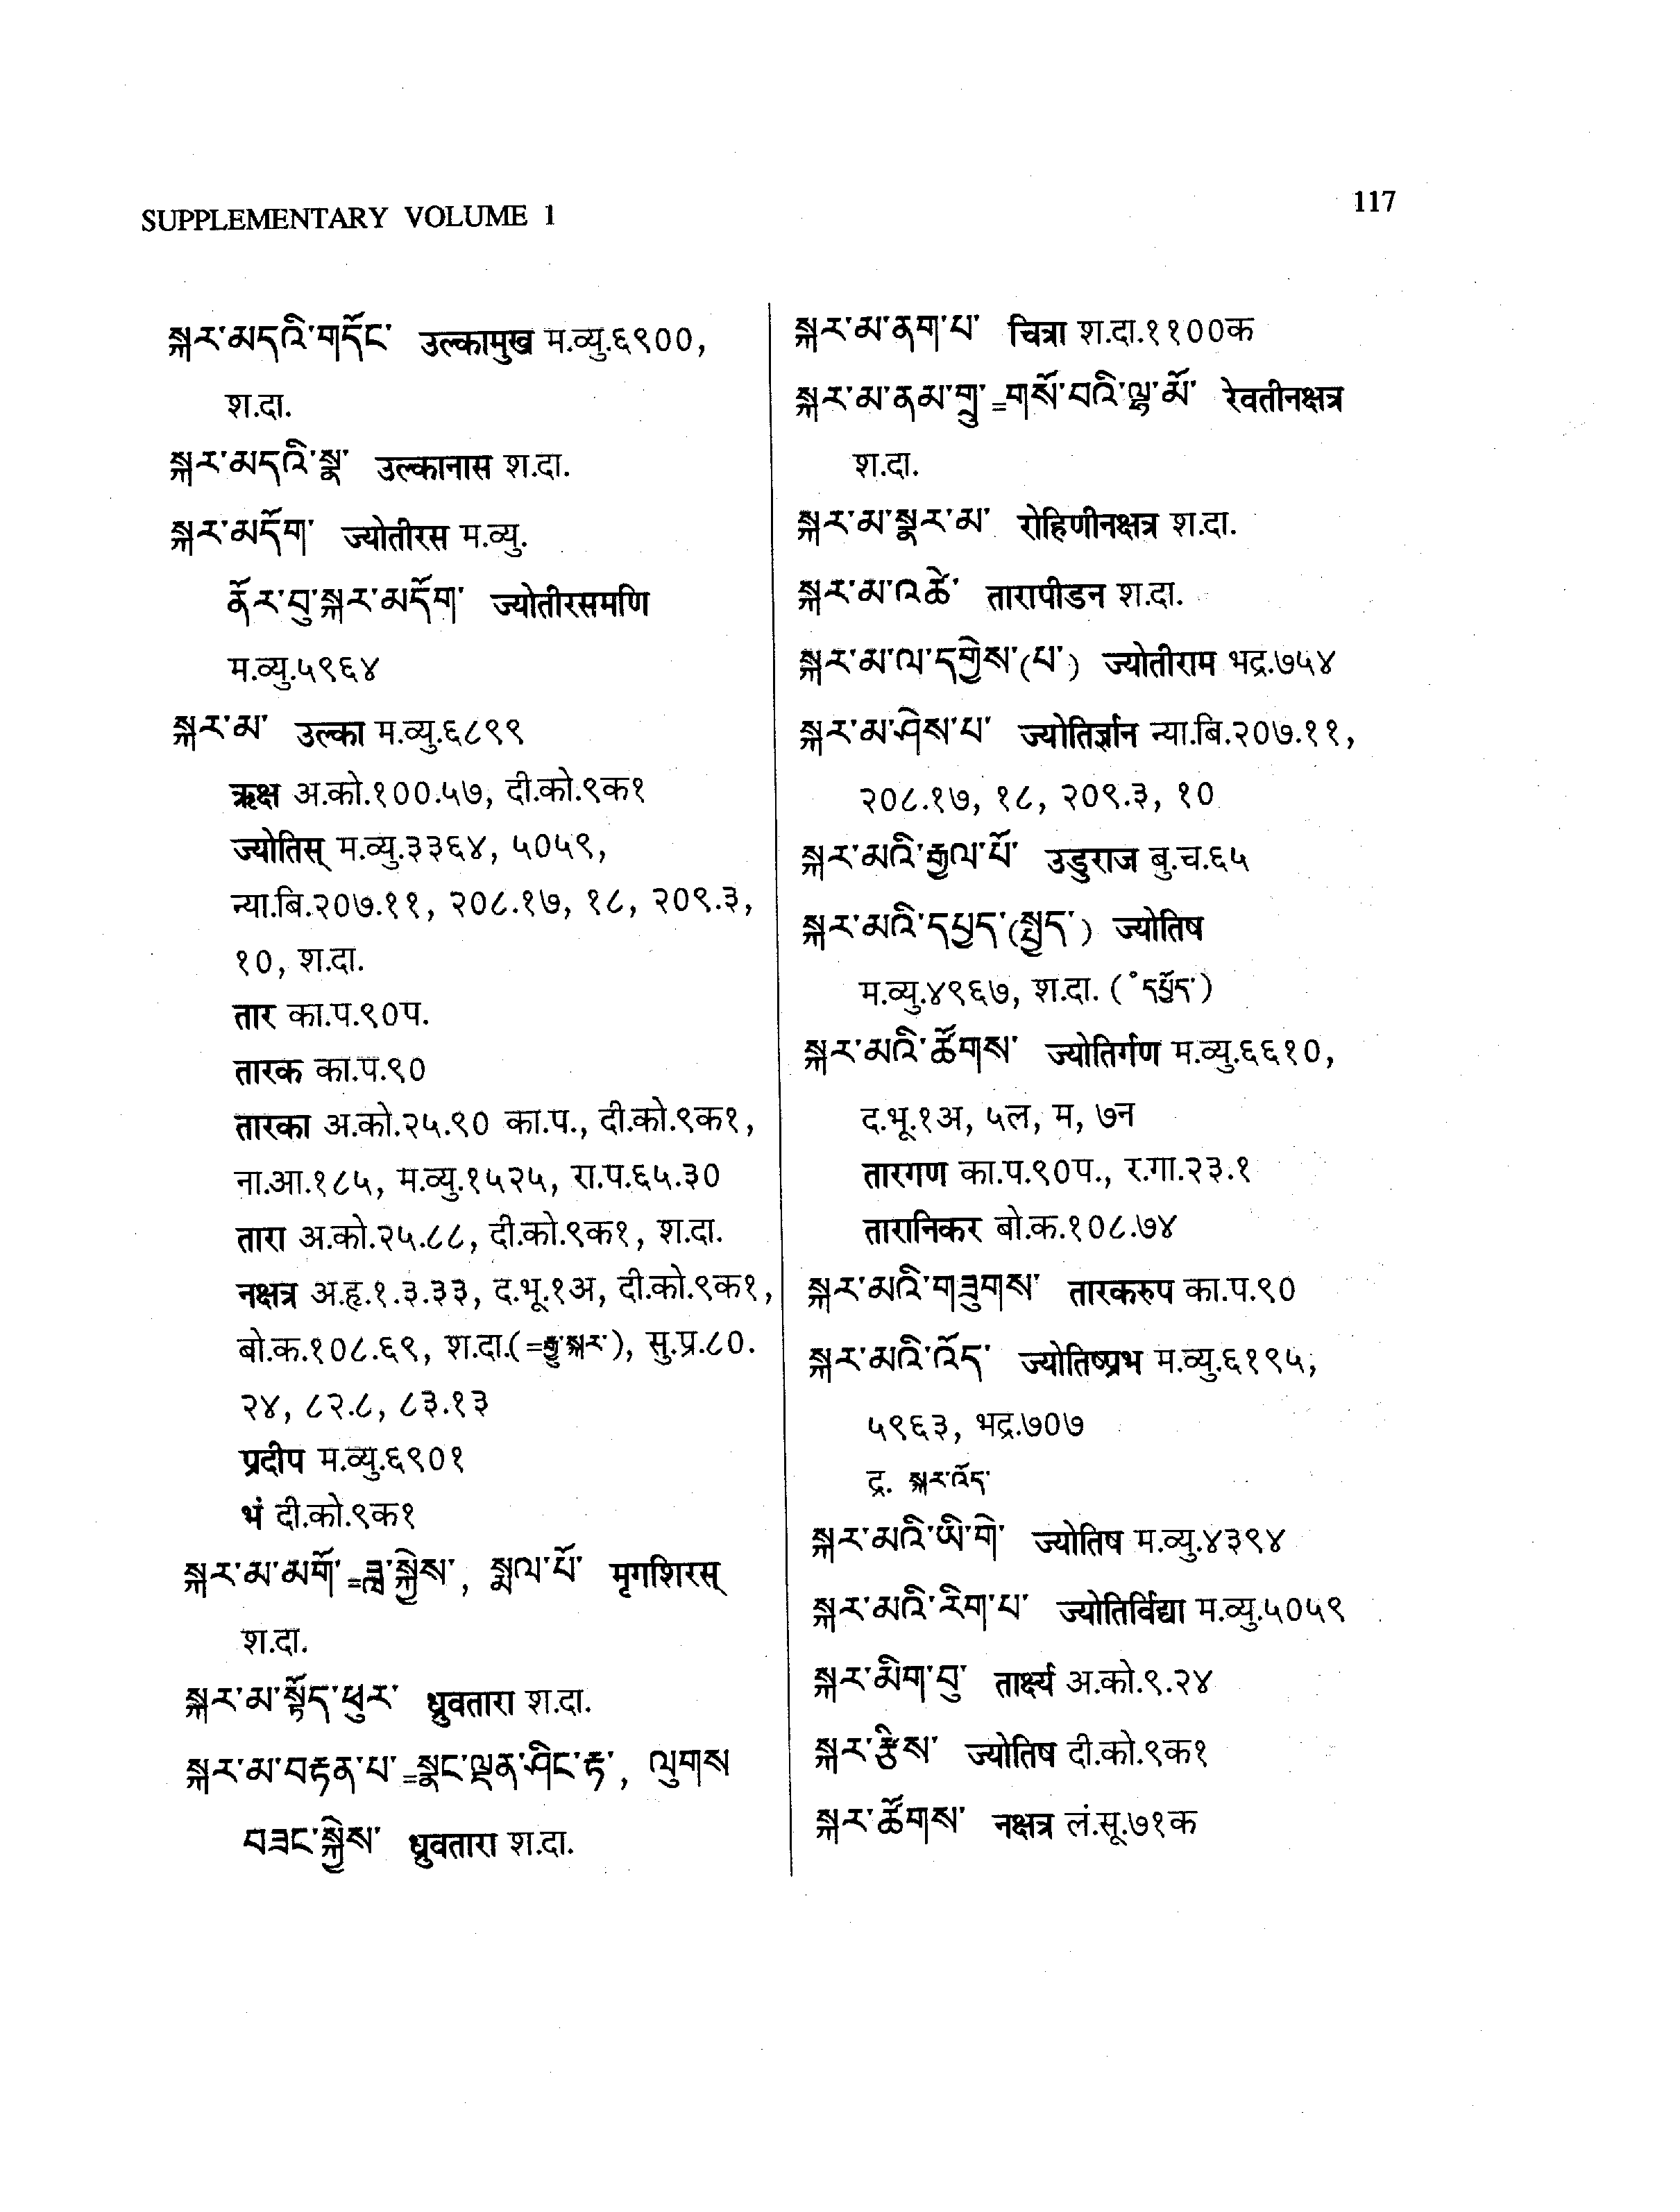 SUPPLEMENTARY VOLUME 1
117
སྐར་མདའི་གདོང་ उल्कामुख म.व्यु.६९००,
श.दा.
སྐར་མདའི་སྣ་ उल्कानास श.दा.
སྐར་མདོག་ ज्योतीरस म.व्यु.
ནོར་བུ་སྐར་མདོག་ ज्योतीरसमणि
म.व्यु.५९६४
སྐར་མ་ उल्का म.व्यु.६८९९
ऋक्ष अ.को.१००.५७, दी.को.९क१
ज्योतिस् म.व्यु.३३६४, ५०५९,
न्या.बि.२०७.११, २०८.१७, १८, २०९.३,
१०, श.दा.
तार का.प.९०प.
तारक का.प.९०
तारका अ.को.२५.९० का.प., दी.को.९क१,
ना.आ.१८५, म.व्यु.१५२५, रा.प.६५.३०
तारा अ.को.२५.८८, दी.को.९क१, श.दा.
नक्षत्र अ.हृ.१.३.३३, द.भू.१अ, दी.को.९क१,
बो.क.१०८.६९, श.दा.(=རྒྱུ་སྐར་), सु.प्र.८०.
२४, ८२.८, ८३.१३
प्रदीप म.व्यु.६९०१
भं दी.को.९क१
སྐར་མ་མགོ་=ཟླ་སྐྱེས་, སྨལ་པོ་ मृगशिरस्
श.दा.
སྐར་མ་སྟོད་ཕུར་ ध्रुवतारा श.दा.
སྐར་མ་བརྟན་པ་=སྣང་ལྡན་ཤིང་རྟ་, ལུགས
བཟང་སྐྱེས་ ध्रुवतारा श.दा.
སྐར་མ་ནག་པ་ चित्रा श.दा.११००क
སྐར་མ་ནམ་གྲུ་=གསོ་བའི་ལྷ་མོ་ रेवतीनक्षत्र
श.दा.
སྐར་མ་སྣར་མ་ रोहिणीनक्षत्र श.दा.
སྐར་མ་འཚེ་ तारापीडन श.दा.
སྐར་མ་ལ་དགྱེས་(པ་) ज्योतीराम भद्र.७५४
སྐར་མ་ཤེས་པ་ ज्योतिर्ज्ञान न्या.बि.२०७.११,
२०८.१७, १८, २०९.३, १०
སྐར་མའི་རྒྱལ་པོ་ उडुराज बु.च.६५
སྐར་མའི་དཔྱད་(སྤྱད་) ज्योतिष
म.व्यु.४९६७, श.दा. (°དཔྱོད་)
སྐར་མའི་ཚོགས་ ज्योतिर्गण म.व्यु.६६१०,
द.भू.१अ, ५ल, म, ७न
तारगण का.प.९०प., र.गा.२३.१
तारानिकर बो.क.१०८.७४
སྐར་མའི་གཟུགས་ तारकरुप का.प.९०
སྐར་མའི་འོད་ ज्योतिष्प्रभ म.व्यु.६१९५,
५९६३, भद्र.७०७
द्र. སྐར་འོད་
སྐར་མའི་ཡི་གེ་ ज्योतिष म.व्यु.४३९४
སྐར་མའི་རིག་པ་ ज्योतिर्विद्या म.व्यु.५०५९
སྐར་མིག་བུ་ तार्क्ष्य अ.को.९.२४
སྐར་རྩིས་ ज्योतिष दी.को.९क१
སྐར་ཚོགས་ नक्षत्र लं.सू.७१क